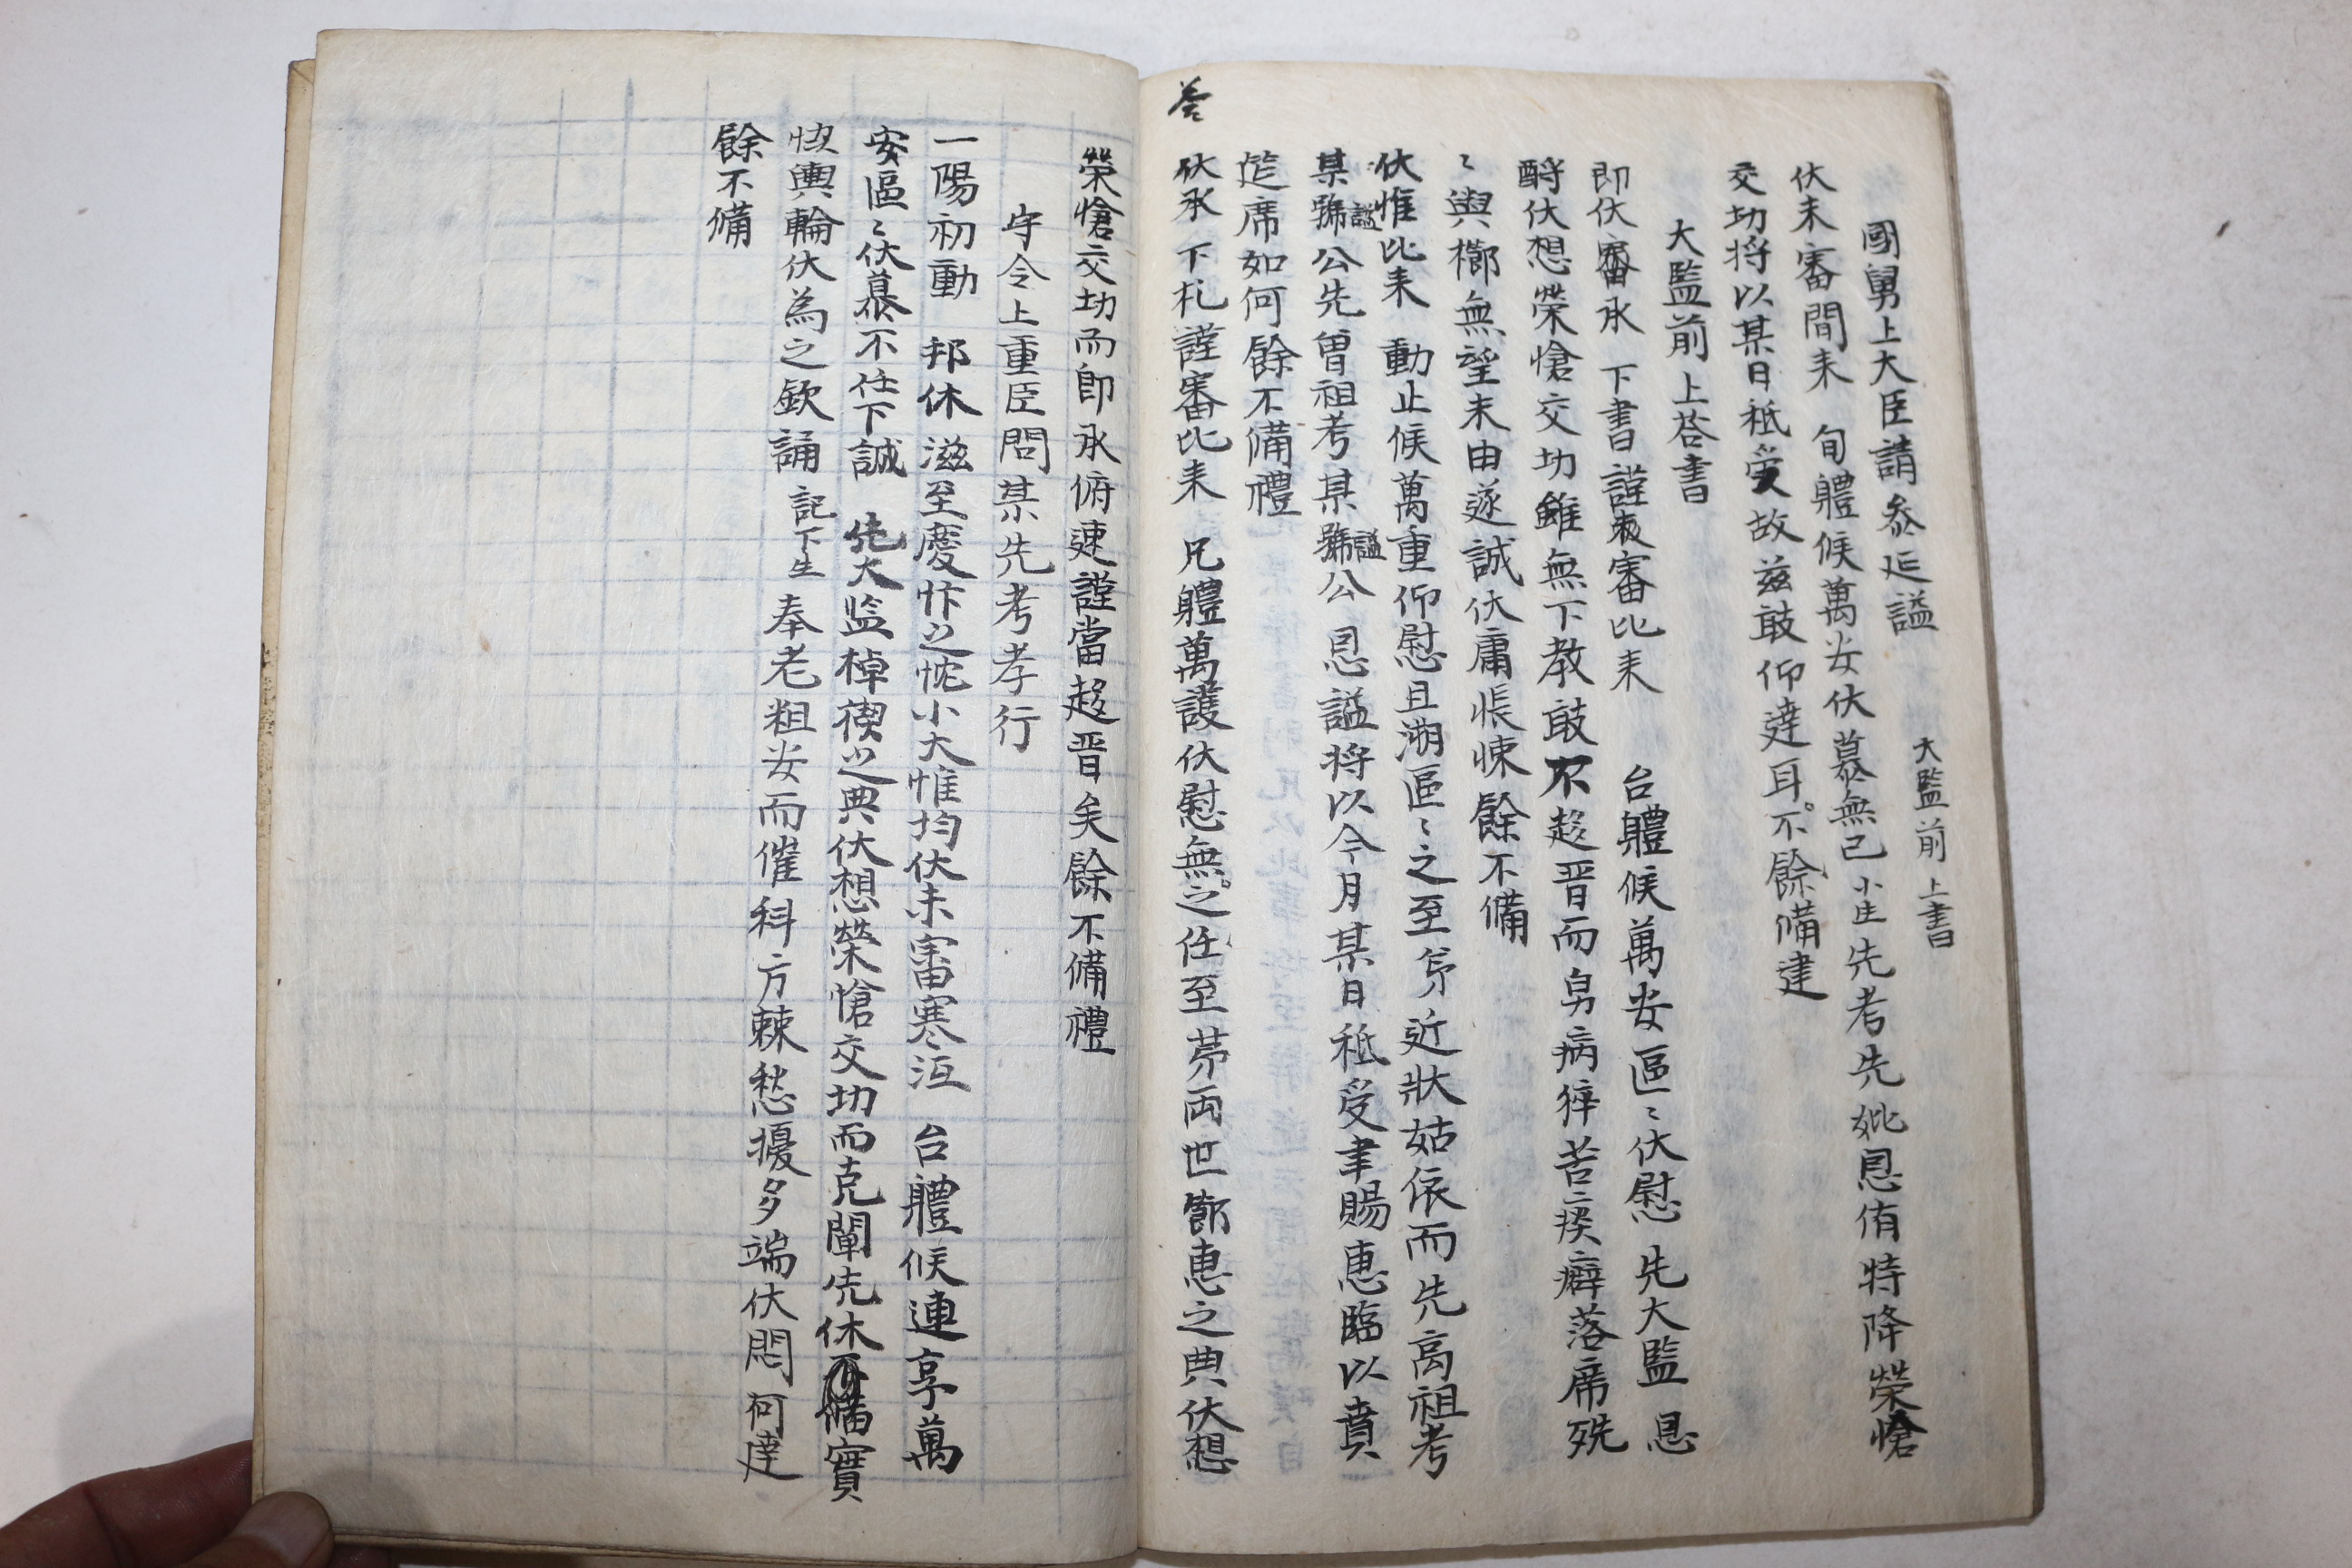 國舅上大臣請叅延謚
大監前 上書
伏未審間来 旬軆候萬安伏慕無已小生先考先妣恩侑特降榮愴
交切將以某日祗受故玆敢仰達耳不餘備達
大監前上答書
即伏審承 下書謹審比来 台軆候萬安區〻伏慰 先大監 恩
酹伏想榮愴交切雖無下教敢不趍晋而舅病猝苦痰癖落席殊
〻與櫛無望末由遂誠伏庸悵悚餘不備
伏惟比来 動止候萬重仰慰且溯區〻之至弟近狀姑依而先高祖考
某號謚公先曾祖考某號謚公 恩謚將以今月某日祗受聿賜惠臨以賁
筵席如何餘不備禮
答
伏承 下札謹審比来 兄軆萬護伏慰無之任至苐両世 節惠之典伏想
榮愴交切而卽承俯速謹當趍晋矣餘不備禮
守令上重臣問某先考孝行
一陽初動 邦休滋至慶忭之忱小大惟均伏未審寒沍 台軆候連享萬
安區〻伏慕不任下誠 先大监棹禊之典伏想榮愴交切而克闡先休備實
恔輿輪伏為之欽誦 記下生 奉老粗安而催科方棘愁擾多端伏悶何達
餘不備